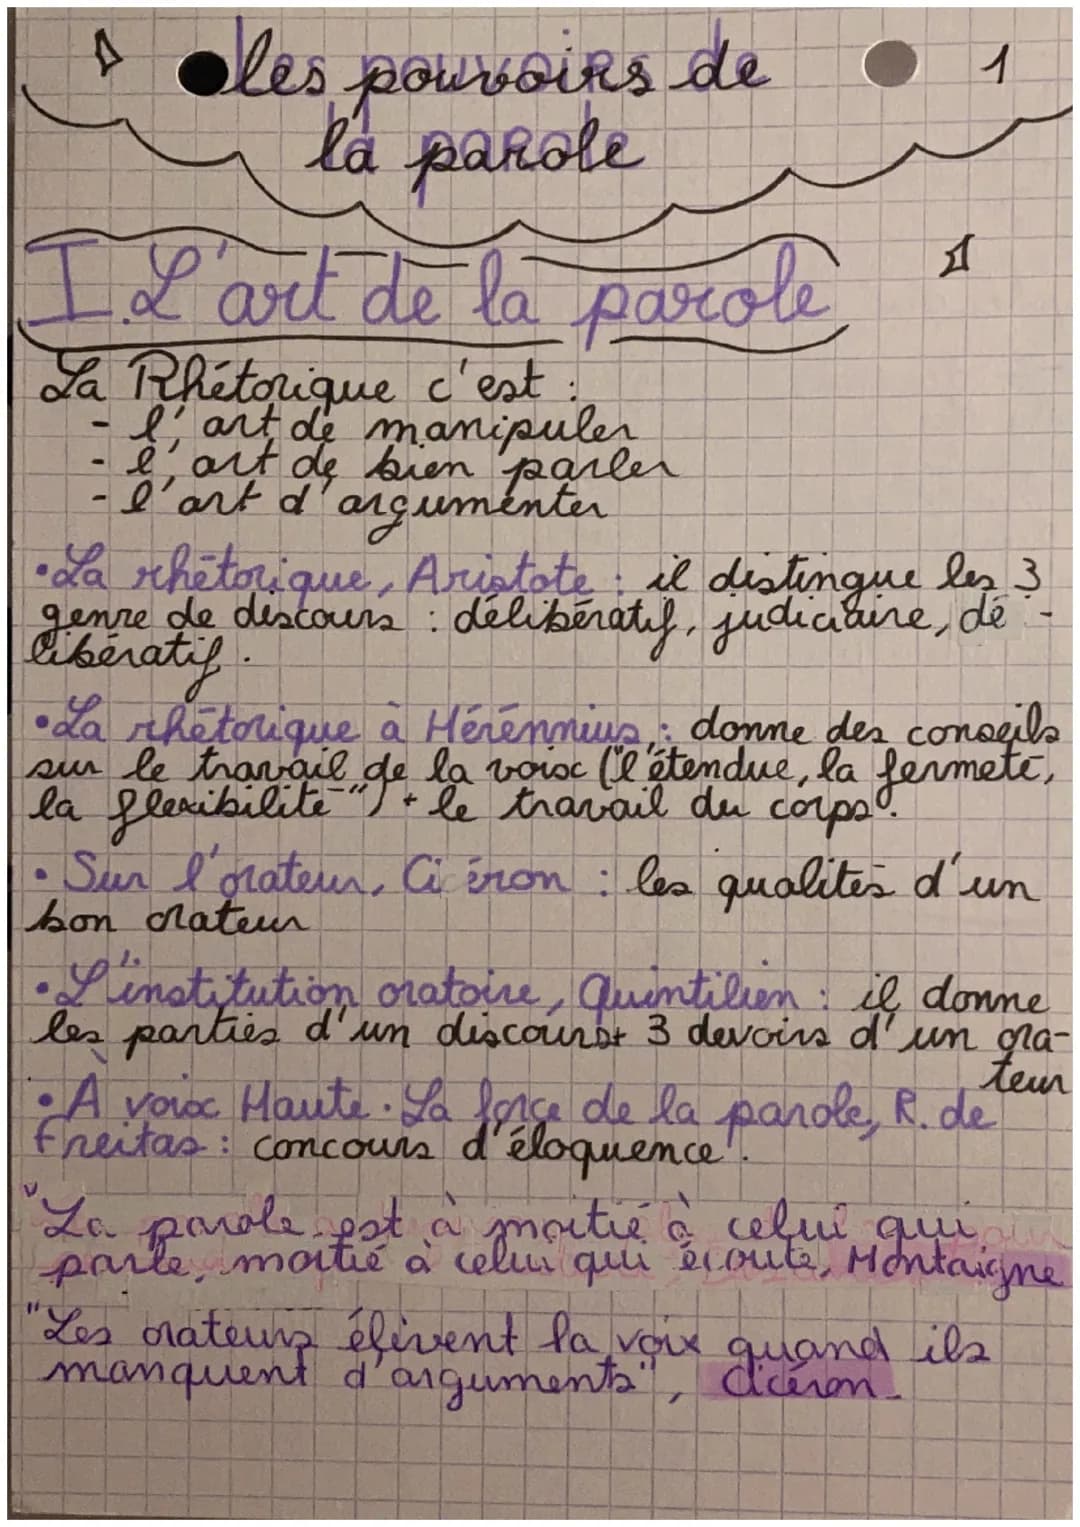 les pouvoirs de
1
la parole
I. L'art de la parole
La Rhétorique c'est :
- l'art de manipuler
- l'art de bien parler
- l'art d'argumenter
• La rhétorique, Aristote : il distingue les 3
genre de discours : délibératif, judiciaire, dé-
libératif.
• La rhétorique à Hérénnius, : donne des conseils
sur le travail de la voix ("l'étendue, la fermeté,
la flexibilité") + le travail du corps.
• Sur l'orateur, Cicéron : les qualités d'un
bon orateur
• L'institution oratoire, Quintilien : il donne
les parties d'un discours + 3 devoirs d'un ora-
teur
• À voix Haute. La force de la parole, R. de
Freitas : concours d'éloquence.
"La parole est à moitié à celui qui
parle, moitié à celui qui écoute, Montaigne
"Les orateurs élèvent la voix quand ils
manquent d'arguments", Cicéron.